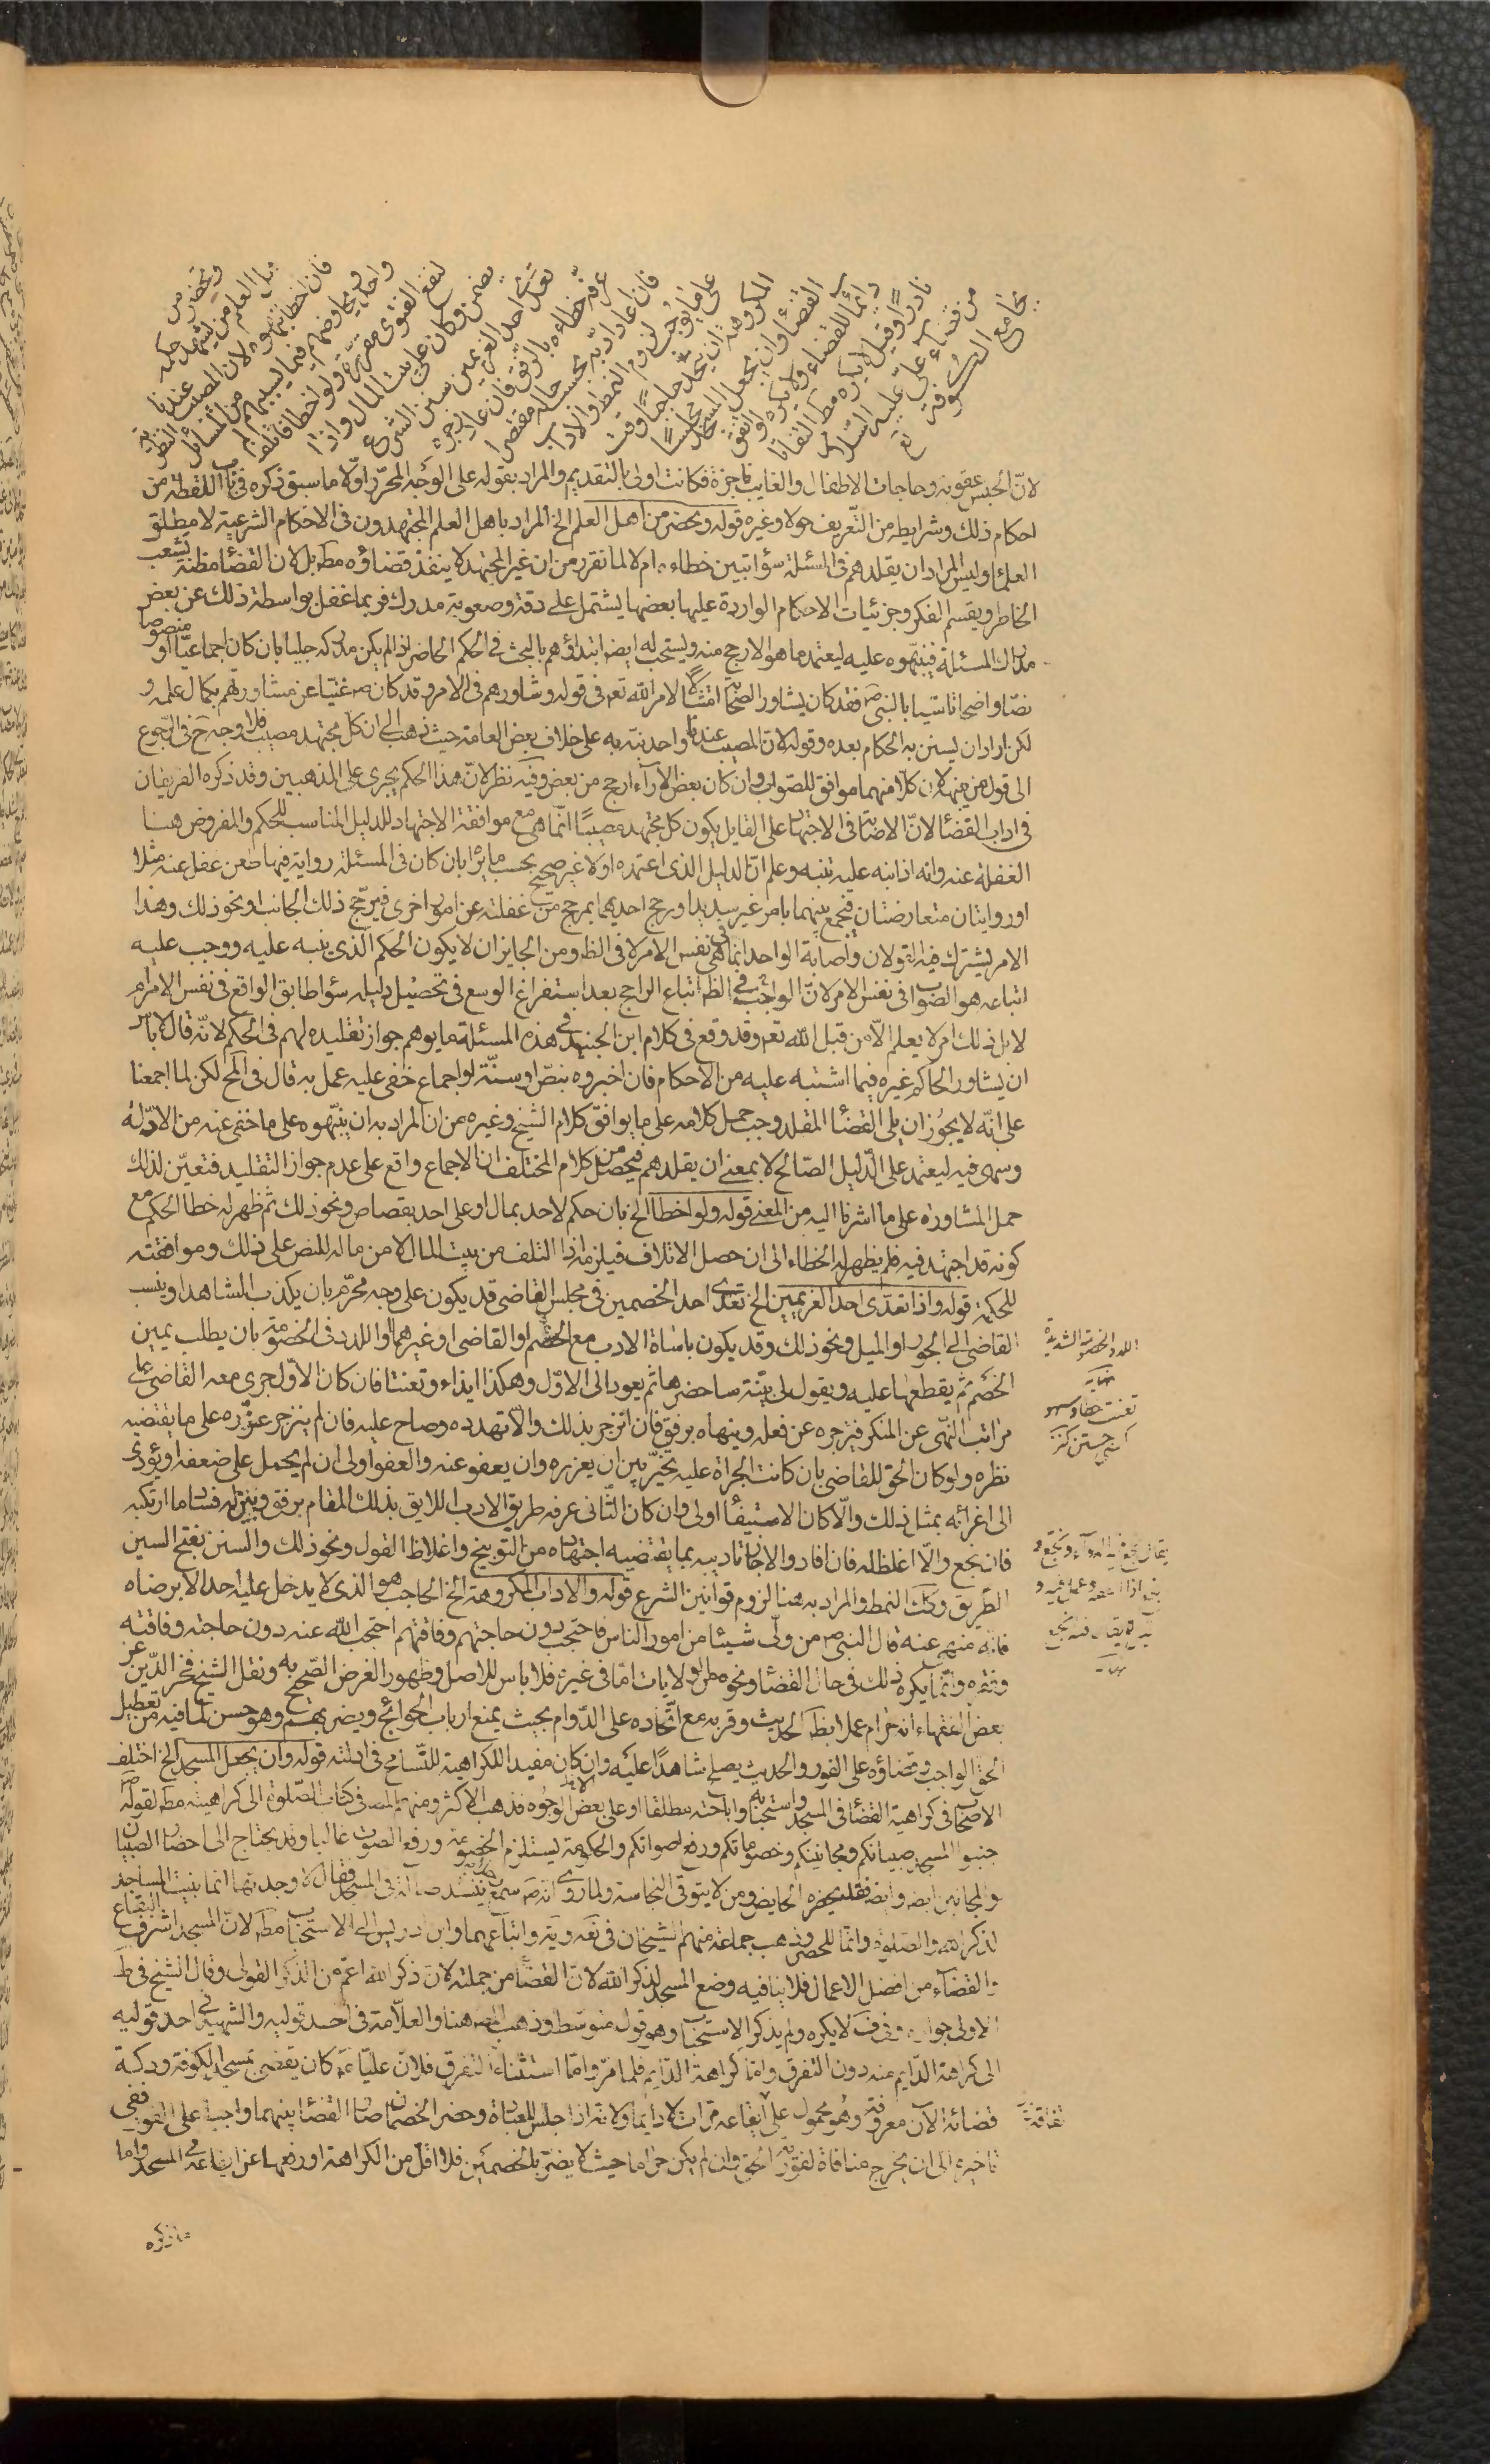 ويحضر من
اهل العلم من يشهد حكمه
فان اخطأ نبهوه لان المصيب عندنا
واحد ويخاوضهم فيما يستبهم من المسائل النظرية
لتقع الفتوى مقررة ولو اخطأ فاتلف لم
يضمن وكان على بيت المال واذا
تعدى احد الغريمين سنن الشرع
عرفه خطاءه بالرفق فان عاد زجره
فان اعاد ادبه بحسب حاله مقتصرا
على ما يوجب لزوم النمط والاداب
المكروهة ان يتخذ حاجبا وقت
القضاء وان يجعل المسجد مجلسا
للقضاء دائما ولا يكره لو اتفق
نادرا وقيل لا يكره مطلقا التفاتا
الى ما عرف من قضاء علي عليه السلام
بجامع الكوفة
لان الحبس عقوبة وحاجات الاطفال والغايب ناجزة فكانت اولى بالتقديم والمراد بقوله على الوجه المحرر اولا ما سبق ذكره في باب اللقطة من
احكام ذلك وشرايطه من التعريف حولا وغيره قوله ويحضر من اهل العلم الخ المراد باهل العلم المجتهدون في الاحكام الشرعية لا مطلق
العلماء وليس المراد ان يقلدهم في المسئلة سواء تبين خطاءه ام لا لما تقرر من ان غير المجتهد لا ينفذ قضاؤه مطه بل لان القضاء مظنة تشعب
الخاطر وبقسم الفكر وجزئيات الاحكام الواردة عليها بعضها يشتمل على دقة وصعوبة مدرك فربما غفل بواسطة ذلك عن بعض
مدارك المسئلة فينبهوه عليه ليعتمد ما هو الارجح منه ويستحب له ايضه ابتداؤهم بالبحث في الحكم الحاضر اذا لم يكن مدركه جليا بان كان اجماعيا او منصوصا
نصا واضحا تاسيا بالنبي ص فقد كان يشاور الصحابة امتثالا لامر الله تع في قوله وشاورهم في الامر وقد كان ص غنيا عن مشاورتهم بكمال علمه و
لكن اراد ان يستن به الحكام بعده وقوله لان المصيب عندنا واحد نبه به على خلاف بعض العامة حيث ذهب الى ان كل مجتهد مصيب فلا وجه ح في الرجوع
الى قول من ينبهه لان كلا منهما موافق للصواب وان كان بعض الآراء ارجح من بعض وفيه نظر لان هذا الحكم يجري على المذهبين وقد ذكره الفريقان
في اداب القضاء لان الاصابة في الاجتهاد على القايل بكون كل مجتهد مصيبا انما هي مع موافقة الاجتهاد للدليل المناسب للحكم والمفروض هنا
الغفلة عنه وانه اذا نبه عليه تنبه وعلم ان الدليل الذي اعتمده اولا غير صحيح بحسب ما يراه بان كان في المسئلة رواية فيها طعن غفل عنه مثلا
او روايتان متعارضتان فيجمع بينهما بامر غير سديد او رجح احديهما بمرجح مع غفلته عن امور اخرى فيرجح ذلك الجانب او نحو ذلك وهذا
الامر يشترك فيه القولان واصابة الواحد انما هي في نفس الامر لا في الظ ومن الجايز ان لا يكون الحكم الذي ينبه عليه ووجب عليه
اتباعه هو الصواب في نفس الامر لان الواجب في الظ اتباع الراجح بعد استفراغ الوسع في تحصيل دليله سواء طابق الواقع في نفس الامر ام
لا بل ذلك امر لا يعلم الا من قبل الله تع وقد وقع في كلام ابن الجنيد في هذه المسئلة ما يوهم جواز تقليده لهم في الحكم لانه قال لا باس
ان يشاور الحاكم غيره فيما اشتبه عليه من الاحكام فان اخبروه بنص او سنة او اجماع خفي عليه عمل به قال في المخ لكن لما اجمعنا
على انه لا يجوز ان يلي القضاء المقلد وجب حمل كلامه على ما يوافق كلام الشيخ وغيره من ان المراد به ان ينبهوه على ما خفي عنه من الادلة
وسهى فيه ليعتمد على الدليل الصالح لا بمعنى ان يقلدهم فيحصل من كلام المختلف ان الاجماع واقع على عدم جواز التقليد فتعين لذلك
حمل المشاورة على ما اشرنا اليه من المعنى قوله ولو اخطأ الخ بان حكم لاحد بمال او على احد بقصاص ونحو ذلك ثم ظهر له خطا الحكم مع
كونه قد اجتهد فيه فلم يظهر له الخطاء الى ان حصل الاتلاف فيلزمه اذا التلف من بيت المال لا من ماله للنص على ذلك وموافقته
للحكمة قوله واذا تعدى احد الغريمين الخ تعدى احد الخصمين في مجلس القاضي قد يكون على وجه محرم بان يكذب الشاهد او ينسب
القاضي الى الجور او الميل ونحو ذلك وقد يكون باساة الادب مع الخصم او القاضي او غيرهما او اللدد في الخصومة بان يطلب يمين
الخصم ثم يقطعها عليه ويقول لي بينة ساحضرها ثم يعود الى الاول وهكذا ايذاء وتعنتا فان كان الاول جرى معه القاضي على
مراتب النهي عن المنكر فيزجره عن فعله وينهاه برفق فان انزجر بذلك والا تهدده وصاح عليه فان لم ينزجر عزره على ما يقتضيه
نظره ولو كان الحق للقاضي بان كانت الجراة عليه تخير بين ان يعزره وان يعفو عنه والعفو اولى ان لم يحمل على ضعفه او يؤدي
الى اغرائه بمثل ذلك والا كان الاستيفاء اولى وان كان الثاني عرفه طريق الادب اللايق بذلك المقام برفق وبين له فساد ما ارتكبه
فان نجع والا اغلظ له فان افاد والا جاز تاديبه بما يقتضيه اجتهاده من التوبيخ واغلاظ القول ونحو ذلك والسنن بفتح السين
الطريق وكك النمط والمراد به هنا لزوم قوانين الشرع قوله والاداب المكروهة الخ الحاجب هو الذي لا يدخل عليه احد الا برضاه
فانه منهي عنه قال النبي ص من ولى شيئا من امور الناس فاحتجب دون حاجتهم وفاقتهم احتجب الله عنه دون حاجته وفاقته
وفقره وانما يكره ذلك في حال القضاء ونحوه من الولايات اما في غيره فلا باس للاصل وظهور الغرض الصحيح به ونقل الشيخ فخر الدين عن
بعض الفقهاء انه حرام عملا بظ الحديث وقربه مع اتخاذه على الدوام بحيث يمنع ارباب الحوائج ويضر بهم وهو حسن لما فيه من تعطيل
الحق الواجب قضاؤه على الفور والحديث يصلح شاهدا عليه وان كان مفيدا للكراهية للتسامح في ادلته قوله وان يجعل المسجد الخ اختلف
الاصحاب في كراهية القضاء في المسجد واستحبابه واباحته مطلقا او على بعض الوجوه فذهب الاكثر ومنهم المصه في كتاب الصلوة الى كراهيته مطه لقوله ص
جنبوا المسجد صبيانكم ومجانينكم وخصوماتكم ورفع اصواتكم والحكومة يستلزم الخصومة ورفع الصوت غالبا وقد يحتاج الى احضار الصبيان
والمجانين ايضه وايضه فقد يحضره الحايض ومن لا يتوقى النجاسة ولما روي انه ص سمع رجلا ينشد ضالة في المسجد فقال لا وجدتها انما بنيت المساجد
لذكر الله والصلوة وانما للحصر وذهب جماعة منهم الشيخان في نعه ويه واتباعهما وابن ادريس الى الاستحباب مطه لان المسجد اشرف البقاع
والقضاء من افضل الاعمال فلا ينافيه وضع المسجد لذكر الله لان القضاء من جملته لان ذكر الله اعم من الذكر القولي وقال الشيخ في ط
الاولى جوازه وفي ف لا يكره ولم يذكر الاستحباب وهو قول متوسط وذهب المصه هنا والعلامة في احد قوليه والشهيد في احد قوليه
الى كراهة الدايم منه دون التفرق واما كراهة الدايم فلما مر واما استثناء التفرق فلان عليا ع كان يقضي بمسجد الكوفة ودكة
قضائه الآن معروفة وهو محمول على ايقاعه مرات لا دايما ولانه اذا جلس للعبادة وحضر الخصمان صار القضاء بينهما واجبا على الفور ففي
تاخيره الى ان يخرج منافاة لفورية الحق وان لم يكن حراما حيث لا يضر بالخصمين فلا اقل من الكراهة او رفعها عن ايقاعه في المسجد واما
ما ذكره
اللدد الخصومة الشديدة
نهاية